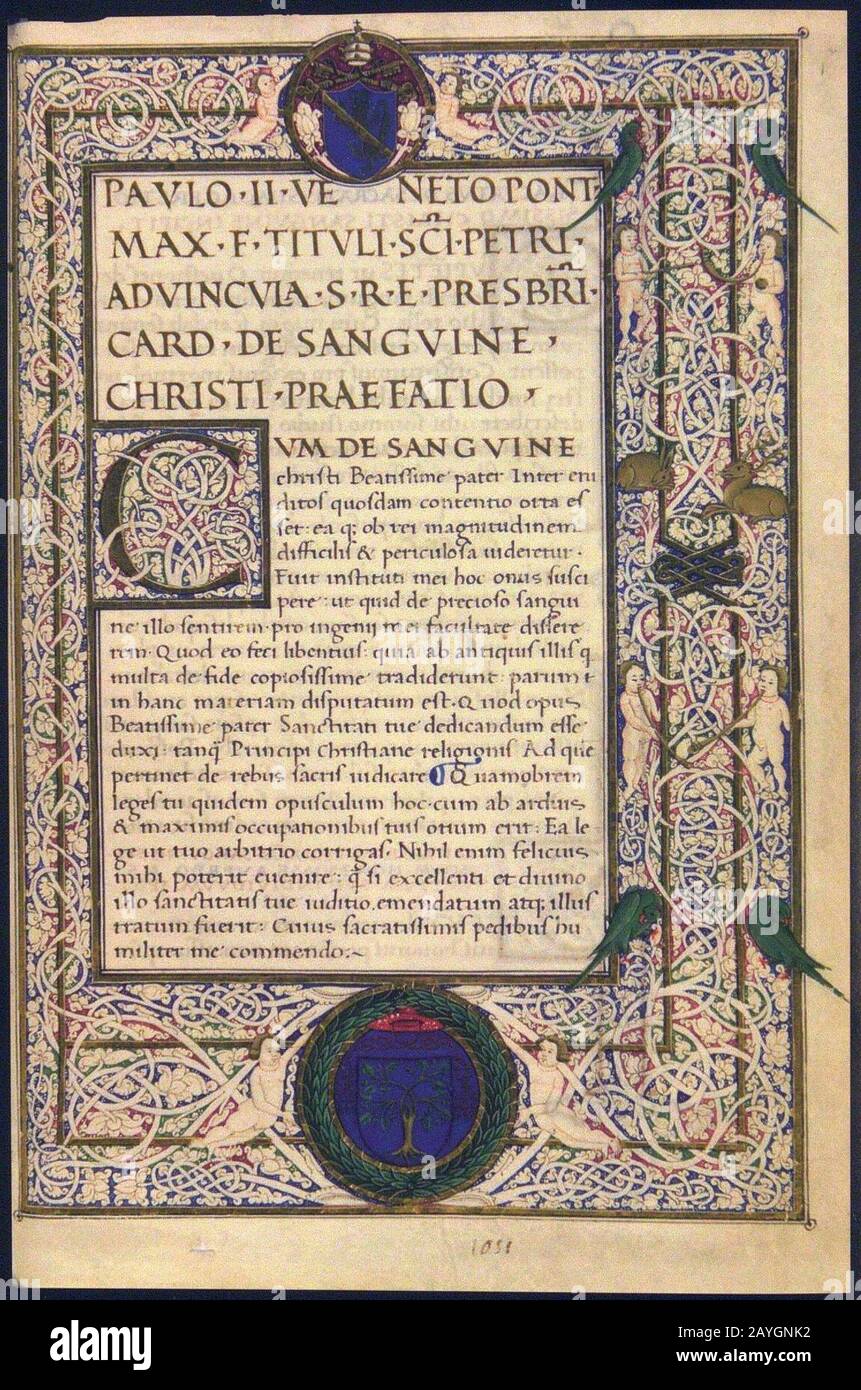 PAVLO · II · VE NETO PONT·
MAX · F · TITVLI · SC̅I · PETRI ·
ADVINCVLA · S · R · E · PRESBR̅I ·
CARD · DE SANGVINE ,
CHRISTI · PRAEFATIO ,
CVM DE SANGVINE
christi Beatissime pater Inter eru
ditos quosdam contentio orta es
set: ea q; ob rei magnitudinem
difficilis & periculosa uideretur.
Fuit instituti mei hoc onus susci
pere: ut quid de precioso sangui
ne illo sentirem pro ingenij mei facultate dissere
rem. Quod eo feci libentius: quia ab antiquis illis q
multa de fide copiosissime tradiderunt: parum
in hanc materiam disputatum est. Quod opus
Beatissime pater Sanctitati tue dedicandum esse
duxi: tanq̃ Principi christiane religionis Ad que
pertinet de rebus sacris iudicare Quamobrem
leges tu quidem opusculum hoc. cum ab arduis
& maximis occupationibus tuis otium erit: Ea le
ge ut tuo arbitrio corrigas. Nihil enim felicius
mihi poterit euenire: q̃ si excellenti et diuino
illo sanctitatis tue iuditio. emendatum atq; illus
tratum fuerit: Cuius sacratissimis pedibus hu
militer me commendo:~
1051
alamy
Image ID: 2AYGNK2
www.alamy.com